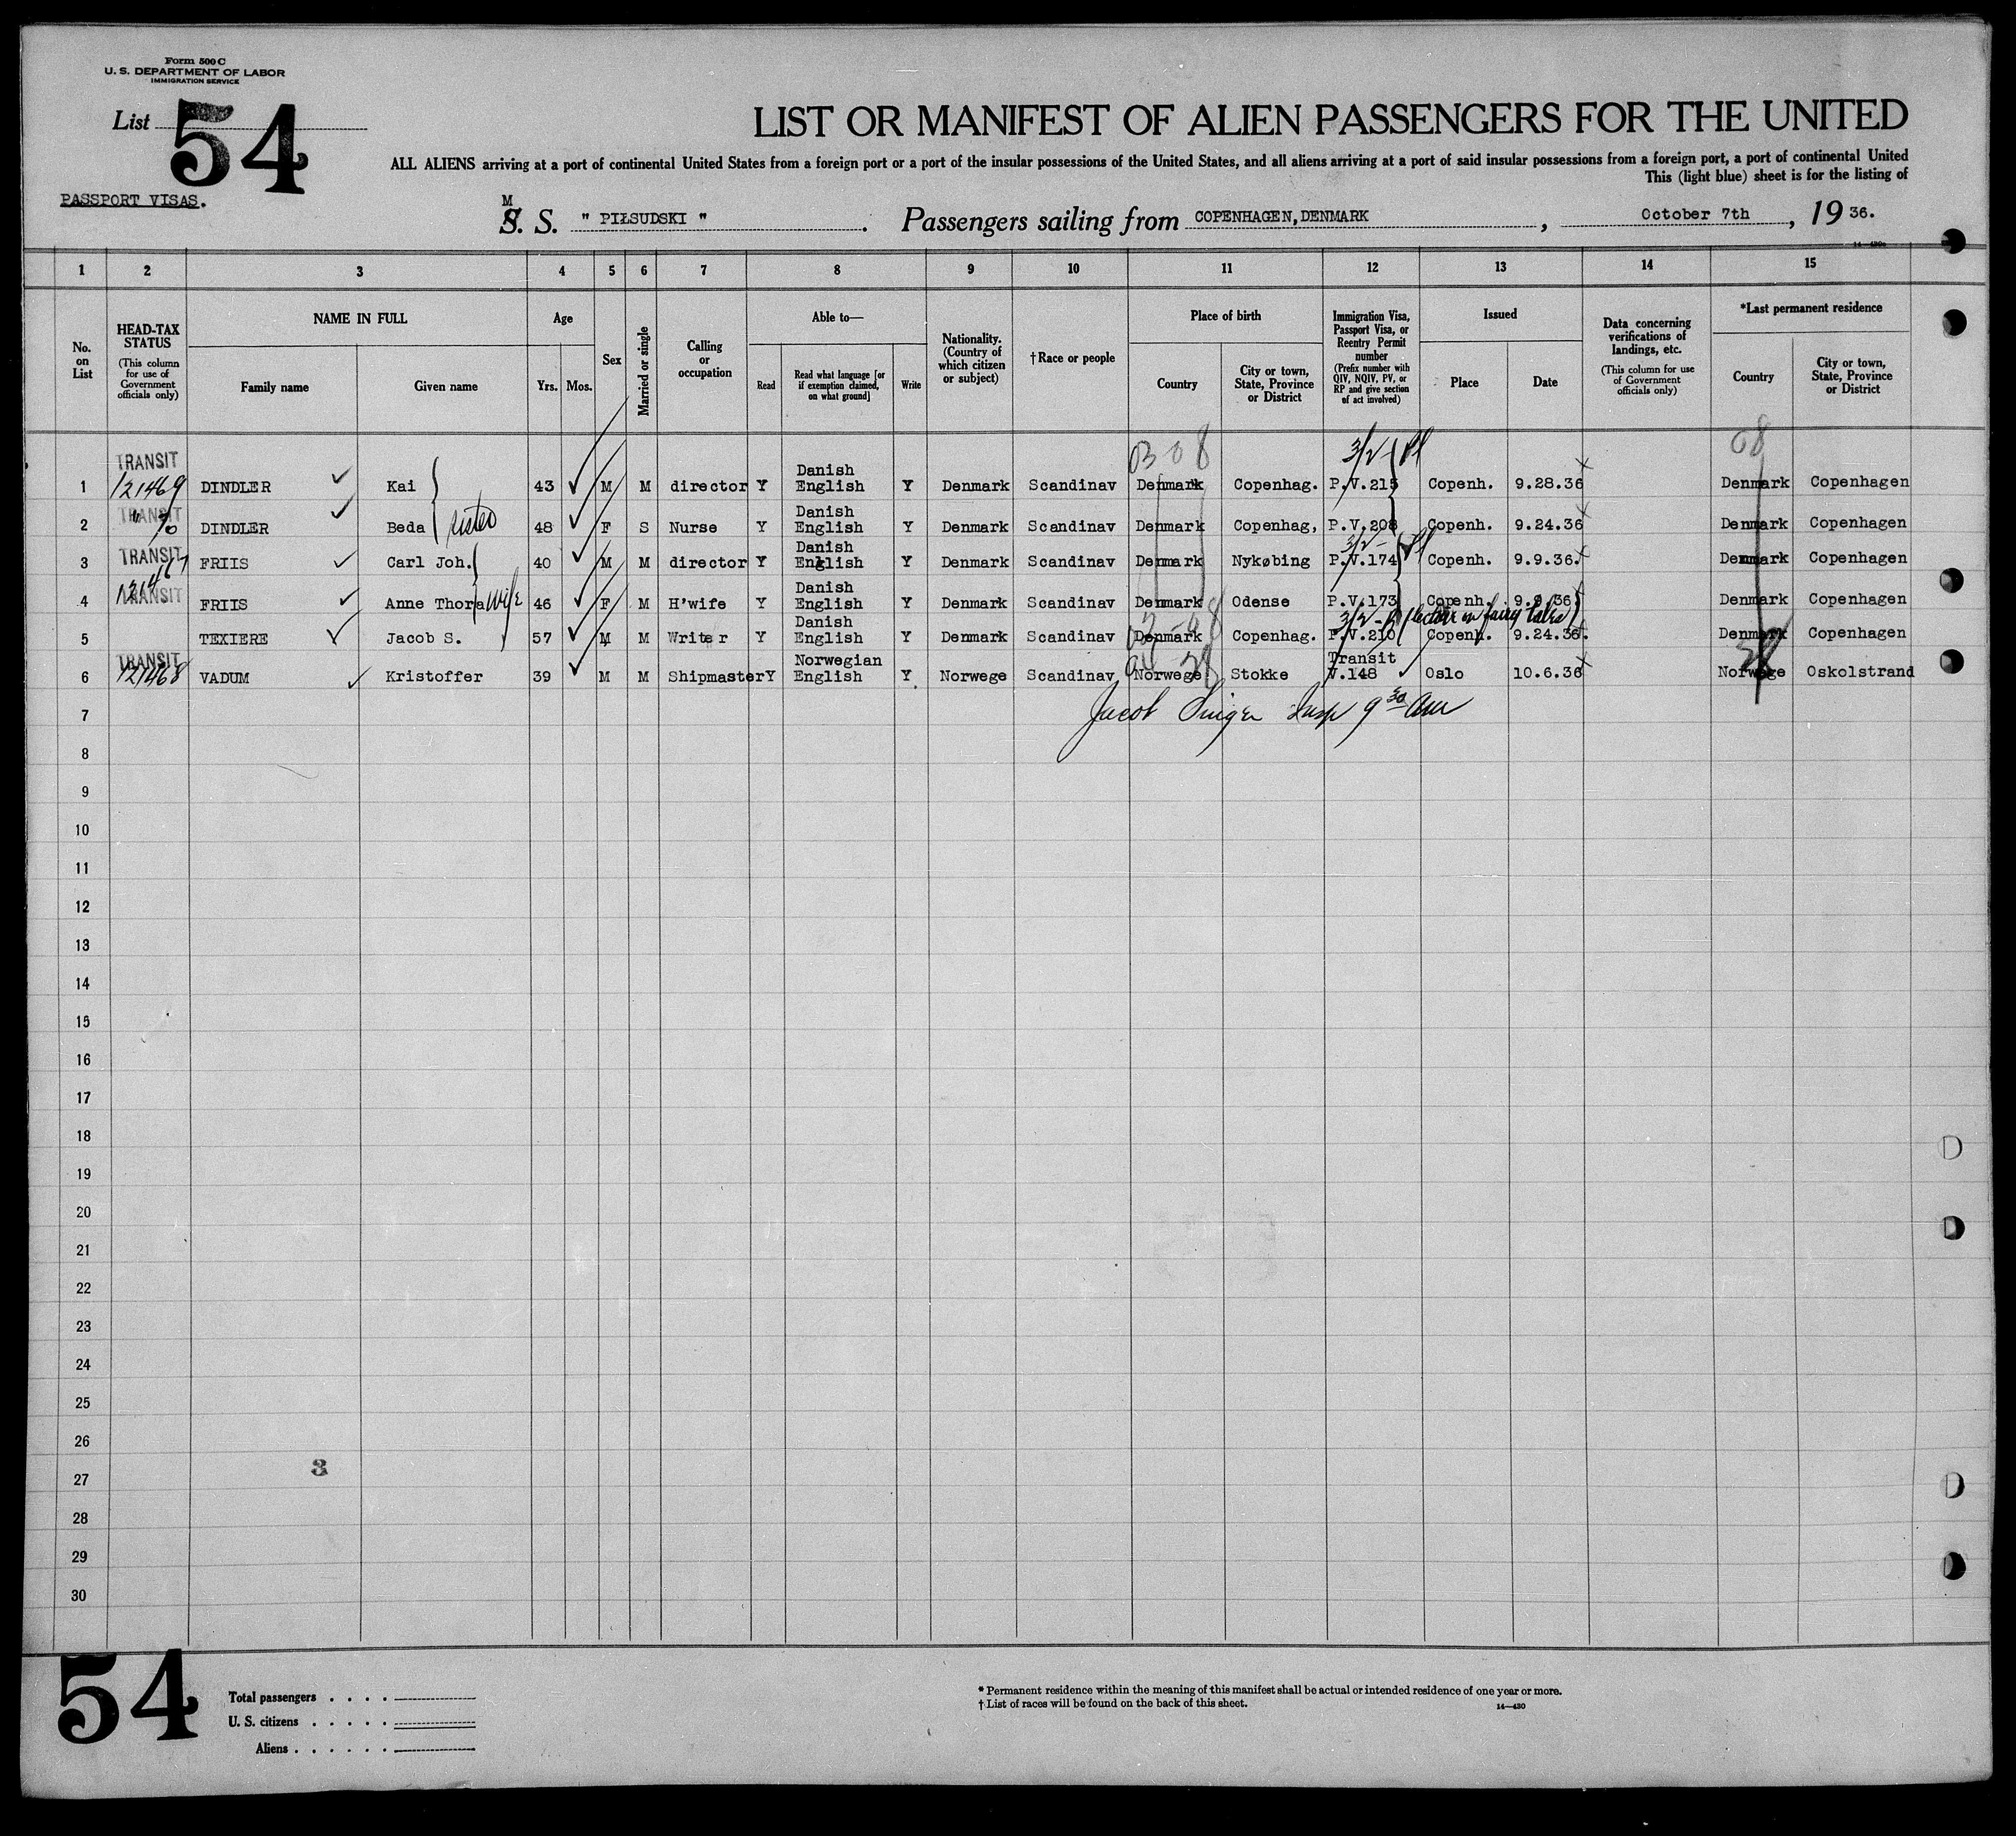 Form 500 C
U. S. DEPARTMENT OF LABOR
IMMIGRATION SERVICE
List 54
LIST OR MANIFEST OF ALIEN PASSENGERS FOR THE UNITED
ALL ALIENS arriving at a port of continental United States from a foreign port or a port of the insular possessions of the United States, and all aliens arriving at a port of said insular possessions from a foreign port, a port of continental United
This (light blue) sheet is for the listing of
PASSPORT VISAS.
M
S. S. " PIŁSUDSKI ". Passengers sailing from COPENHAGEN,DENMARK, October 7th, 19 36.
1 2 3 4 5 6 7 8 9 10 11 12 13 14 15
No. on List
HEAD-TAX STATUS (This column for use of Government officials only)
NAME IN FULL Family name Given name
Age Yrs. Mos.
Sex
Married or single
Calling or occupation
Able to— Read Read what language [or if exemption claimed, on what ground] Write
Nationality. (Country of which citizen or subject)
†Race or people
Place of birth Country City or town, State, Province or District
Immigration Visa, Passport Visa, or Reentry Permit number (Prefix number with QIV, NQIV, PV, or RP and give section of act involved)
Issued Place Date
Data concerning verifications of landings, etc. (This column for use of Government officials only)
*Last permanent residence Country City or town, State, Province or District
03 08 3/2- 08
1 TRANSIT 121469 DINDLER Kai 43 M M director Y Danish English Y Denmark Scandinav Denmark Copenhag. P.V.215 Copenh. 9.28.36 Denmark Copenhagen
2 TRANSIT " 70 DINDLER Beda sister 48 F S Nurse Y Danish English Y Denmark Scandinav Denmark Copenhag, P.V.208 Copenh. 9.24.36 Denmark Copenhagen
3 TRANSIT 121467 FRIIS Carl Joh. 40 M M director Y Danish English Y Denmark Scandinav Denmark Nykøbing 3/2- P.V.174 Copenh. 9.9.36. Denmark Copenhagen
4 TRANSIT FRIIS Anne Thora wife 46 F M H'wife Y Danish English Y Denmark Scandinav Denmark Odense P.V.173 Copenh. 9.9.36 Denmark Copenhagen
5 TEXIERE Jacob S. 57 M M Writer Y Danish English Y Denmark Scandinav Denmark Copenhag. 3/2- P.V.210 (lectur on fairy tales) Copenh. 9.24.36. Denmark Copenhagen
6 TRANSIT 121468 VADUM Kristoffer 39 M M Shipmaster Y Norwegian English Y Norwege Scandinav Norwege Stokke Transit V.148 Oslo 10.6.36 28 Norwege Oskolstrand
7 Jacob Singer Insp 9 30 am
8
9
10
11
12
13
14
15
16
17
18
19
20
21
22
23
24
25
26
27 3
28
29
30
54
Total passengers . . . .
U. S. citizens . . . . .
Aliens . . . . . .
* Permanent residence within the meaning of this manifest shall be actual or intended residence of one year or more.
† List of races will be found on the back of this sheet. 14—430